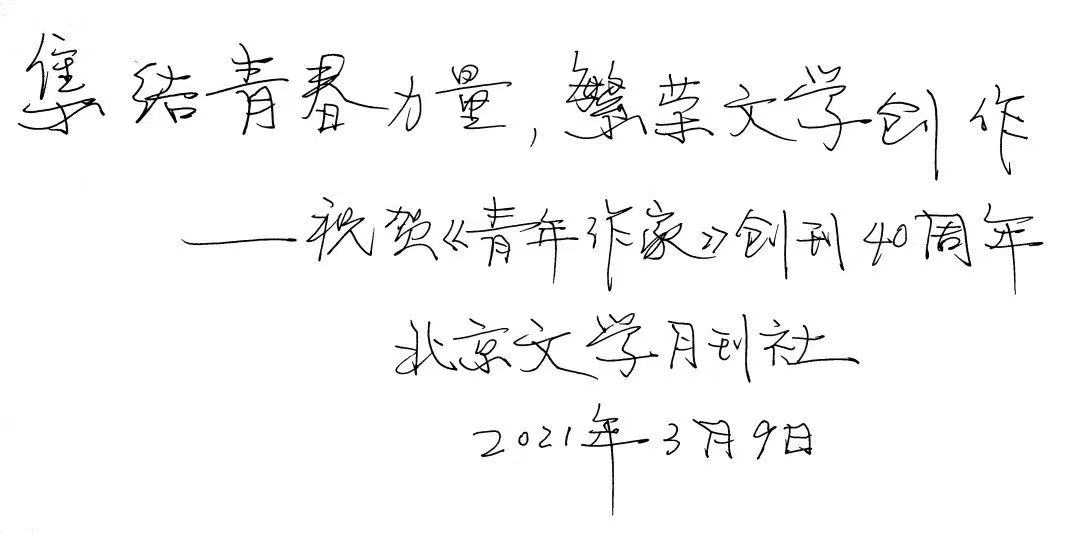 集结青春力量,繁荣文学创作
——祝贺《青年作家》创刊40周年
北京文学月刊社
2021年3月9日